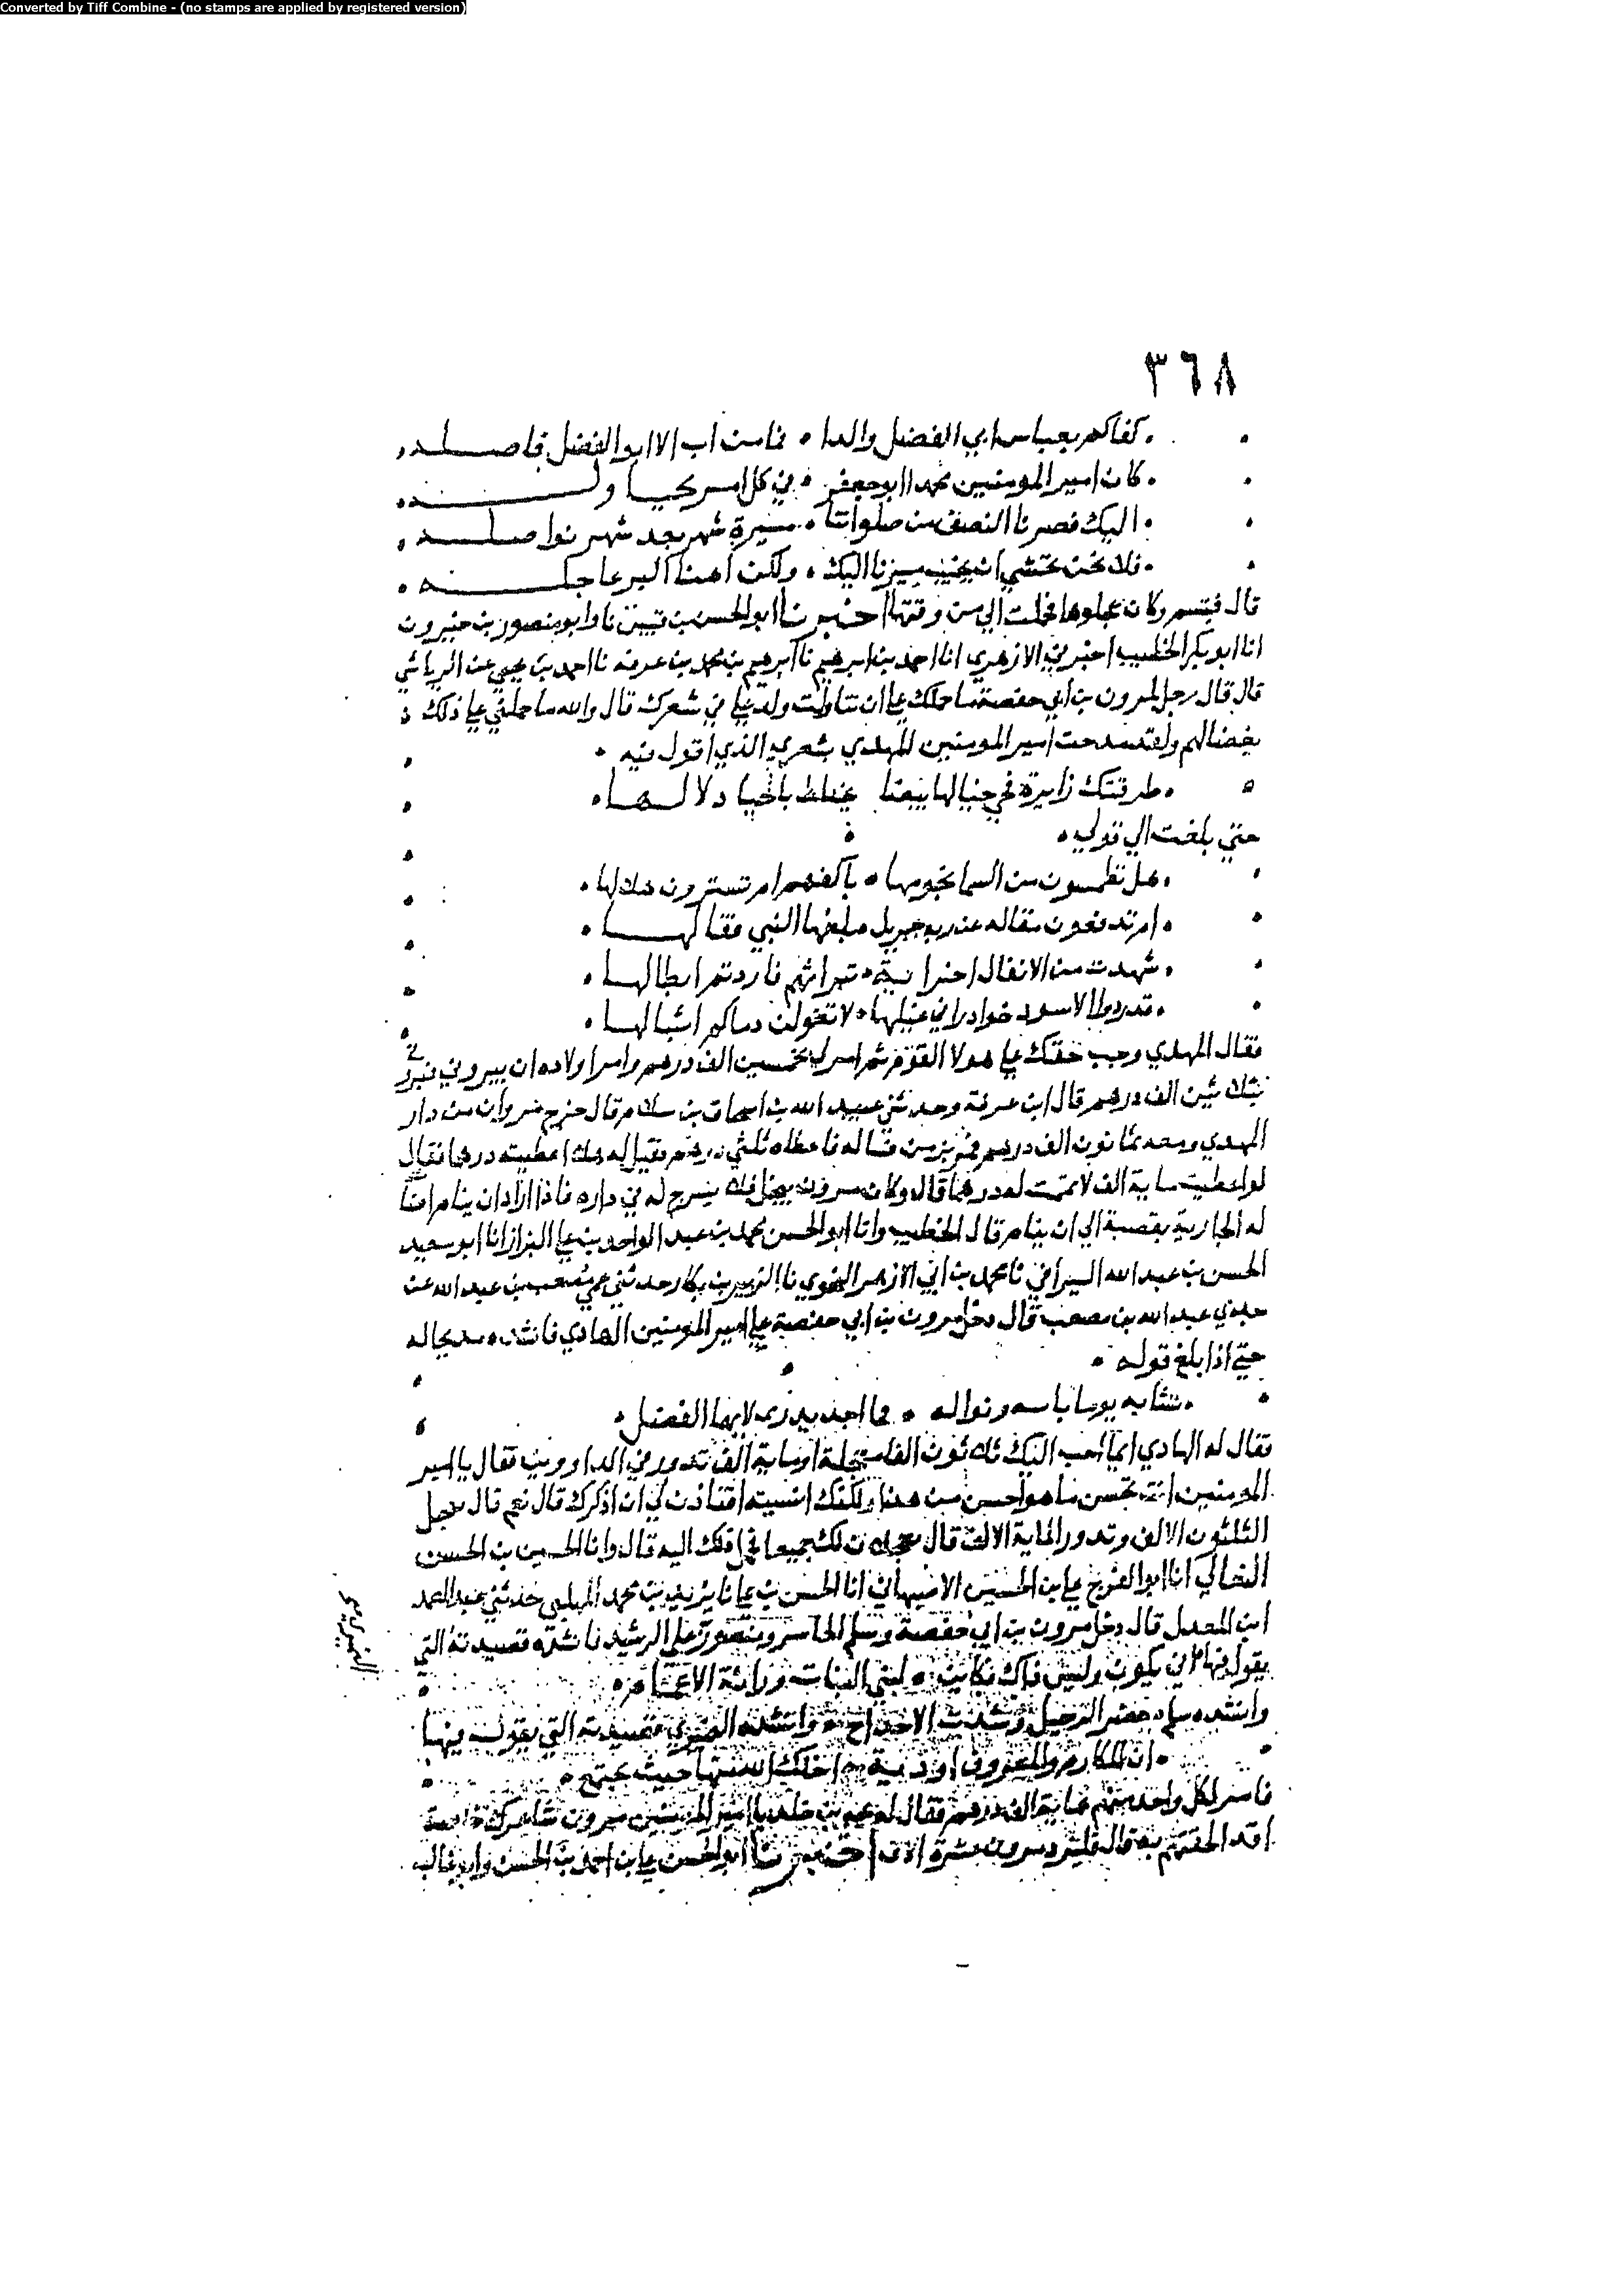 Converted by Tiff Combine - (no stamps are applied by registered version)
٣٦٨
كفاكم بعباس ابي الفضل والدا فما من اب الا ابو الفضل فاصله
كان امير المومنين محمدا ابو جعفر في كل امر يحاوله
اليك قصرنا النصف من صلواتنا مسيرة شهر بعد شهر نواصله
فلا نحن نخشي ان يخيب مسيرنا اليك ولكن اهنا البر عاجله
قال فتبسم وكان عجلوها فحملت الي من وقتها اخبرنا ابو الحسن بن قبيس نا وابو منصور بن خيرون
انا ابو بكر الخطيب اخبرني الازهري انا احمد بن ابرهيم نا ابرهيم بن محمد بن عرفه نا احمد بن يحيي عن الرياشي
قال قال رجل لمرون بن ابي حفصة ما حملك علي ان تناولت ولد علي في شعرك قال والله ما حملني علي ذلك
بغضا لهم ولقد مدحت امير المومنين المهدي بشعري الذي اقول فيه
طرقتك زايرة فحي خيالها بيضا تخلط بالحيا دلالها
حتي بلغت الي قولي
هل تطمسون من السما نجومها باكفهم ام تسترون هلالها
ام تدفعون مقاله عن ربه جبريل مبلغها النبي فقالها
شهدت من الانفال اخر اية بتراثهم فاردتم ابطالها
فدروا الاسود خوادرا في غيلها لا تولغن دماكم اشبالها
فقال المهدي وجب حقك علي هولا القوم ثم امر لي بخمسين الف درهم وامر اولاده ان يبروني فبروني
بثلاثين الف درهم قال ابن عرفة وحدثني عبيد الله بن اسحاق بن سلام قال خرج مروان من دار
المهدي ومعه ثمانون الف درهم فمر بزمن فساله فاعطاه ثلثي درهم فقيل له هلا اعطيته درهما فقال
لو اعطيت ماية الف لاتممت له درهما قال وكان مرون يبخل فلا يسرج له في داره فاذا اراد ان ينام اضات
له الجارية بقصبة الي ان ينام قال الخطيب وانا ابو الحسن محمد بن عبد الواحد بن علي البزاز انا ابو سعيد
الحسن بن عبد الله السيرافي نا محمد بن ابي الازهر النحوي نا الزبير بن بكار حدثني عمي مصعب بن عبد الله عن
جدي عبد الله بن مصعب قال دخل مرون بن ابي حفصة علي امير المومنين الهادي فانشده مديحا له
حتي اذا بلغ قوله
تشابه يوما باسه ونواله فما احد يدري لايهما الفضل
فقال له الهادي ايما احب اليك ثلاثون الفا معجلة او ماية الف تدور في الدواوين فقال يا امير
المومنين انت تحسن ما هو احسن من هذا ولكنك انسيته افتاذن لي ان اذكرك قال نعم قال تعجل
الثلثون الالف وتدور الماية الالف قال تعجلان لك جميعا فحمل ذلك اليه قال وانا الحسين بن الحسن
النعالي انا ابو الفرج علي بن الحسين الاصبهاني انا الحسن بن علي نا يزيد بن محمد المهلبي حدثني عبد الصمد
ابن المعدل قال دخل مرون بن ابي حفصة وسلم الخاسر ومنصور علي الرشيد فانشده قصيدته التي
النميري
يقول فيها اني يكون وليس ذاك بكاين لبني البنات وراثة الاعمام
وانشده سلم حضر الرحيل وشدت الاحداج وانشده النميري قصيدته التي يقول فيها
ان المكارم والمعروف اودية احلك الله منها حيث تجتمع
فامر لكل واحد منهم بماية الف درهم فقال له يحيي بن خلد يا امير المومنين مرون شاعرك خاصة
قد الحقتهم به قال فليزد مرون عشرة الاف اخبرنا ابو الحسن علي بن احمد بن الحسن وابو غالب